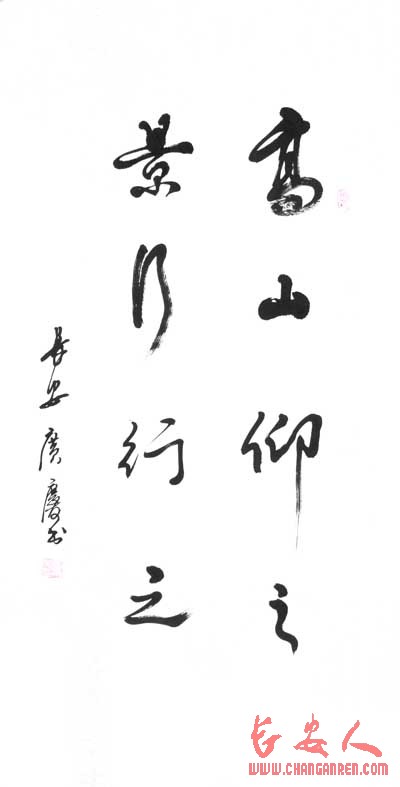 高山仰之
景行行之
長安廣慶书
长安人
WWW.CHANGANREN.COM